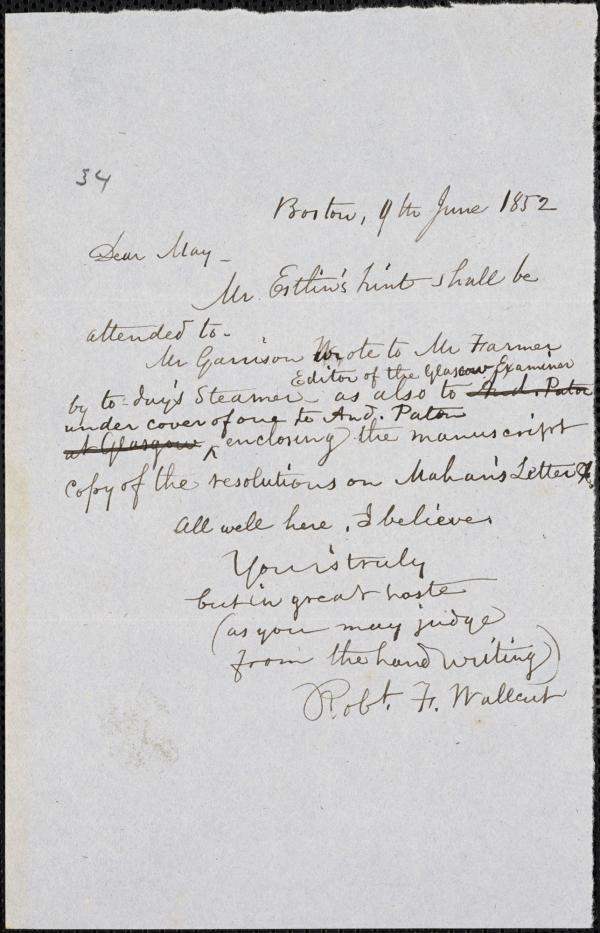 34
Boston, 9th June 1852
Dear May -
Mr. Estlin's hint shall be
attended to.
Mr Garrison Wrote to Mr Farmer
Editor of the Glasgow Examiner
by to-day's Steamer as also to And. Paton
under cover of one to And. Paton
at Glasgow ^ enclosing the manuscript
copy of the resolutions on Mahan's Letter
All well here, I believe.
Your's truly
but in great haste
(as you may judge
from the hand writing)
Robt. F. Wallcut